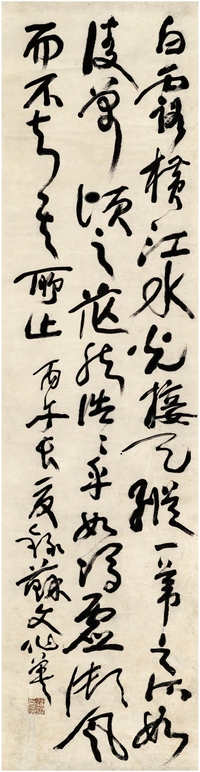 白露橫江水光接天縱一葦之所如
凌萬頃之茫然浩〻乎如馮虛御風
而不知其所止 丙午長夏錄蘇文